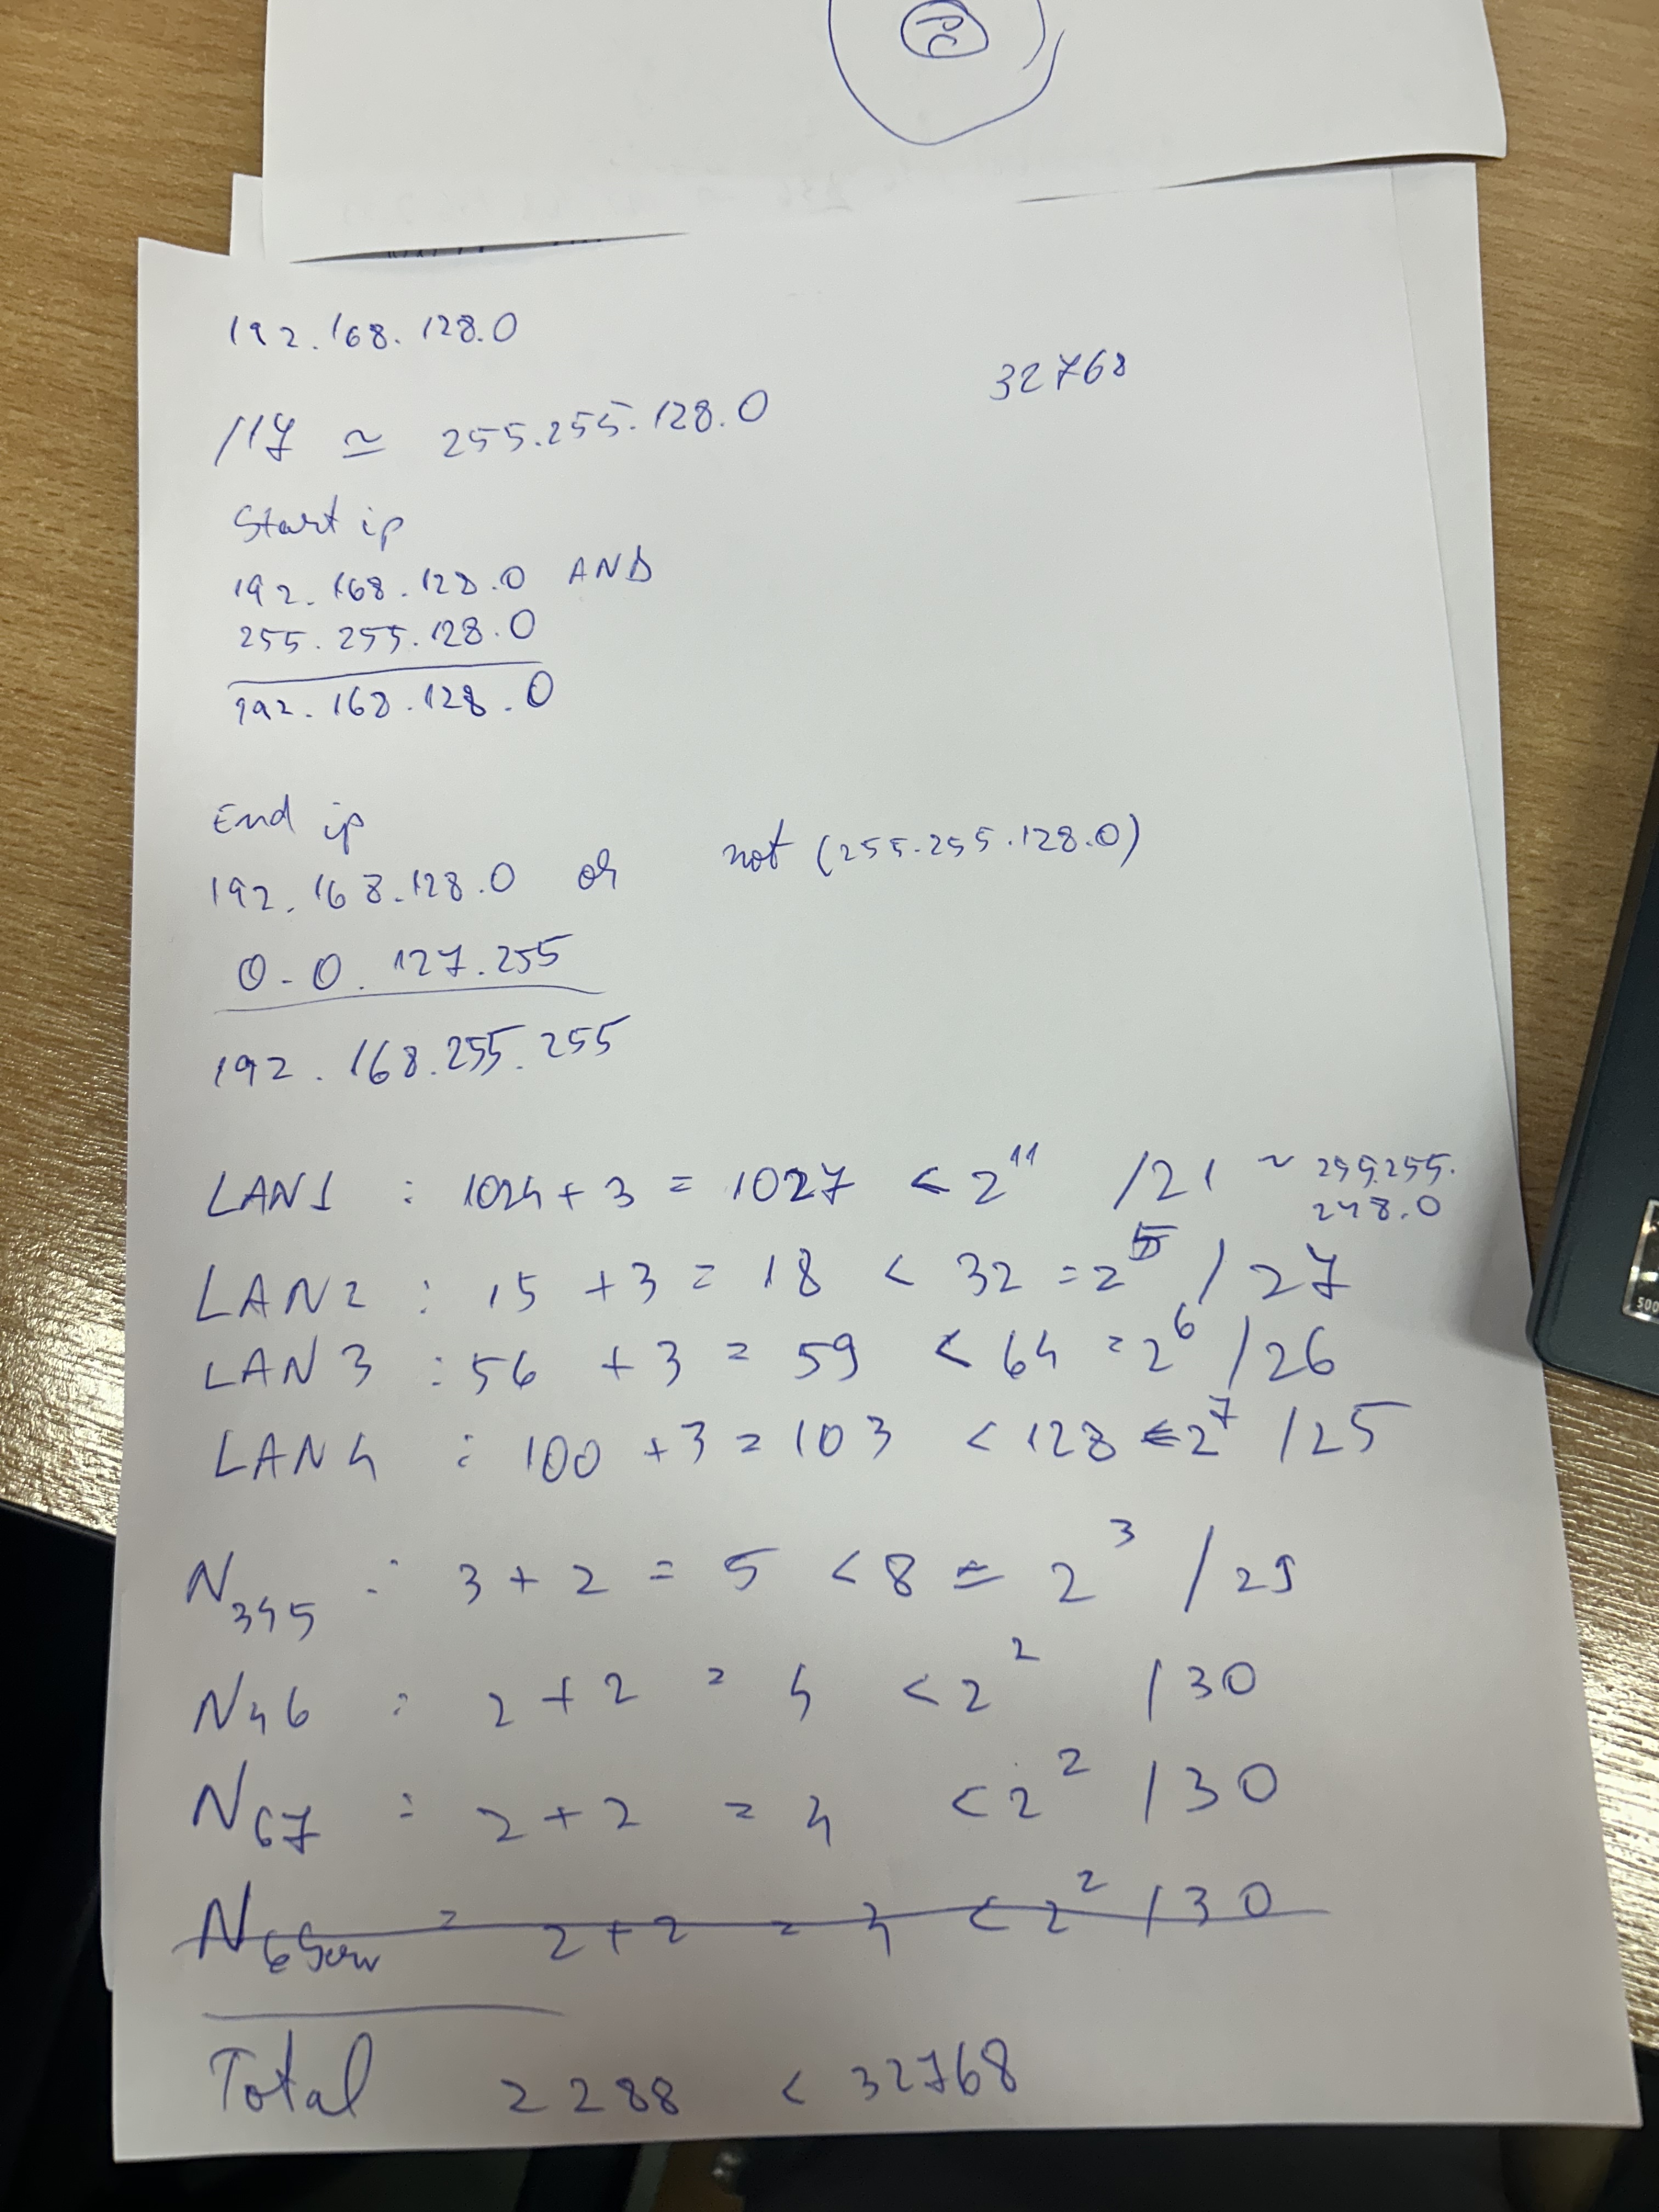 192.168.128.0
32768
/17 ≃ 255.255.128.0
Start ip
192.168.128.0 AND
255.255.128.0
192.168.128.0
End ip
192.168.128.0 or not (255.255.128.0)
0.0.127.255
192.168.255.255
LAN1 : 1024 + 3 = 1027 < 2^11 /21 ~ 255.255.
248.0
LAN2 : 15 + 3 = 18 < 32 = 2^5 /27
LAN3 : 56 + 3 = 59 < 64 = 2^6 /26
LAN4 : 100 + 3 = 103 < 128 = 2^7 /25
N345 : 3 + 2 = 5 < 8 = 2^3 /29
N46 : 2 + 2 = 4 < 2^2 /30
N67 : 2 + 2 = 4 < 2^2 /30
N6Serv = 2 + 2 = 4 < 2^2 /30
Total 2288 < 32768